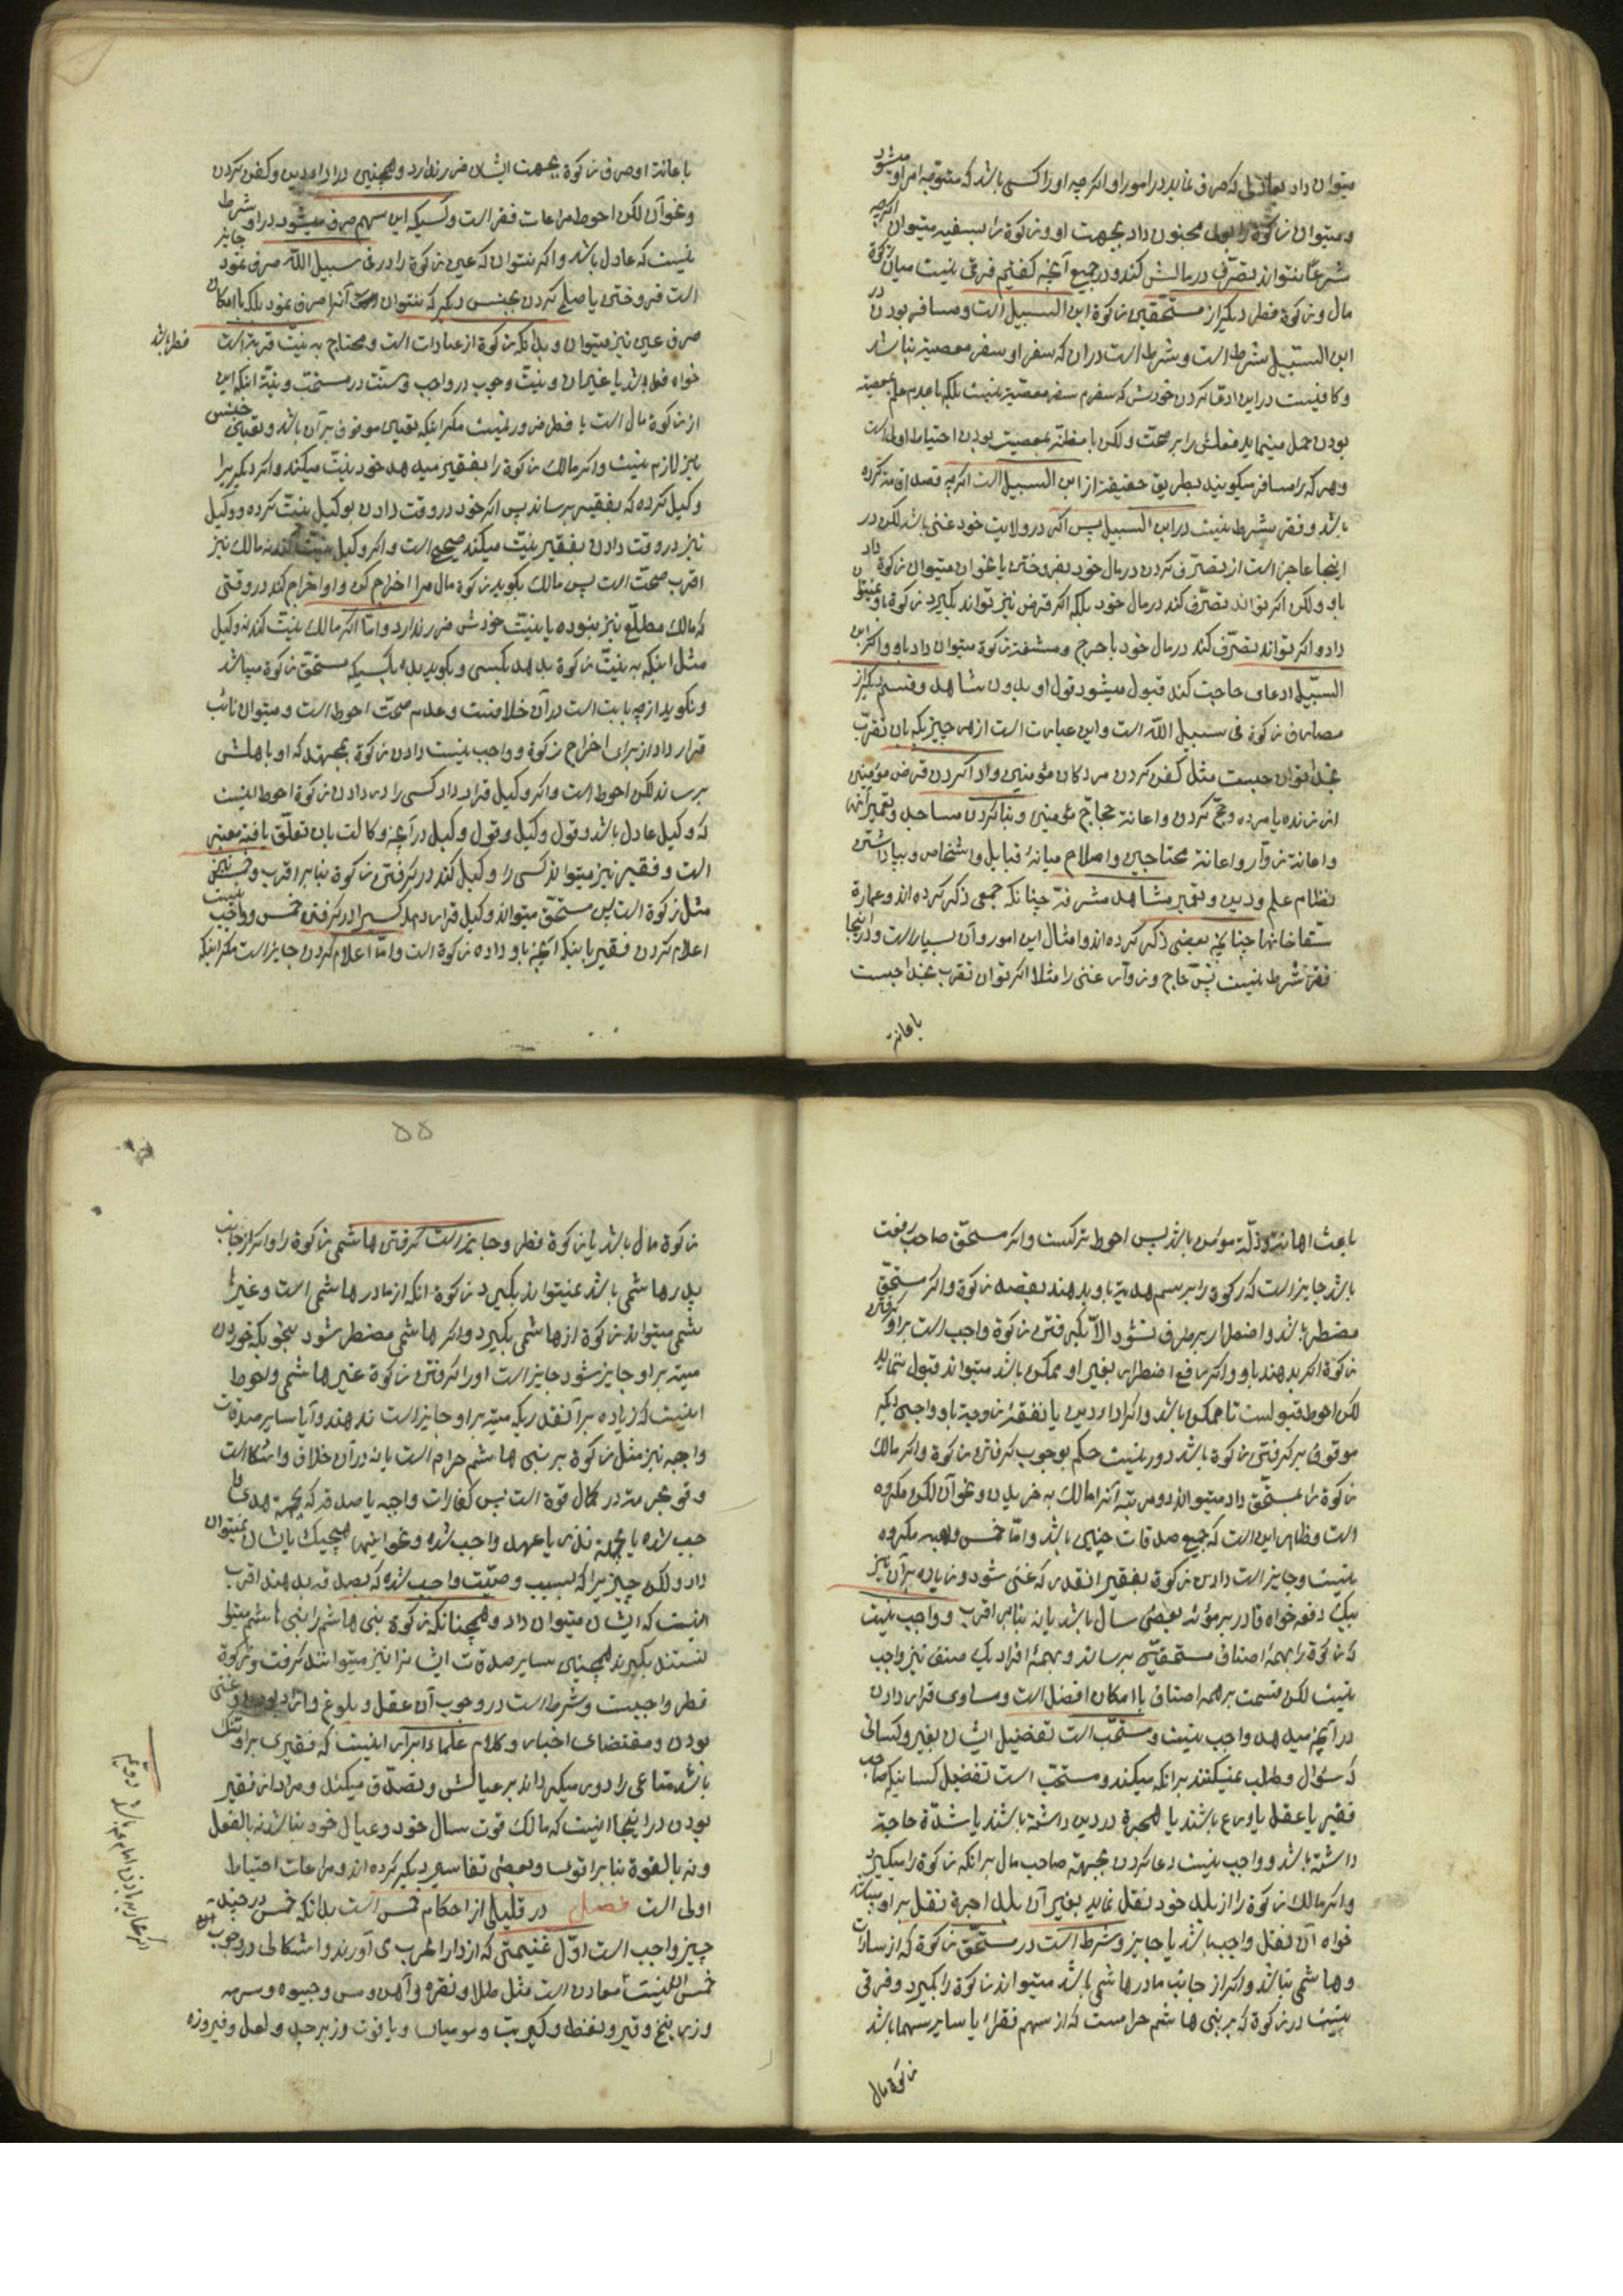 میتوان داد بعادلی که صرف نماید در امور او اگرچه او را کسی باشد که متوجه امر او میشود
و میتوان زکوة را بولی مجنون داد بجهت او و زکوة را بسفیه میتوان اگرچه
شرعا نتواند تصرف در مالش کند و در جمیع آنچه گفتیم فرقی نیست میان زکوة
مال و زکوة فطر دیگر از مستحقین زکوة ابن السبیل است و مسافر بودن در
ابن السبیل شرط است و شرط است در آن که سفر او سفر معصیة نباشد
و کافیست در این ادعا کردن خودش که سفرم سفر معصیة نیست بلکه با عدم علم بمعصیة
بودن حمل مینماید فعلش را بر صحت و لکن با مظنه بمعصیت بودن احتیاط اولی است
و هر که را مسافر میگویند بطریق حقیقة از ابن السبیل است اگرچه قصد اقامة کرده
باشد و فقر شرط نیست در ابن السبیل پس اگر در ولایت خود غنی باشد لکن در
اینجا عاجز است از تصرف کردن در مال خود بفروختن یا نحو آن میتوان زکوة داد
باو و لکن اگر تواند تصرف کند در مال خود بلکه اگر قرض نیز تواند بگیرد زکوة باو نمیتوان
داد و اگر تواند تصرف کند در مال خود با حرج و مشقة زکوة میتوان داد باو و اگر ابن
السبیل ادعای حاجت کند قبول میشود قول او بدون شاهد و قسم دیگر از
مصارف زکوة فی سبیل الله است و این عبارت است از هر چیزیکه بان تقرب
بخدا توان جست مثل کفن کردن مردکان مؤمنین و ادا کردن قرض مؤمنین
از زنده یا مرده و حج کردن و اعانة حجاج مؤمنین و بنا کردن مساجد و تعمیر آنها
و اعانة زوار و اعانة محتاجین و اصلاح میانۀ قبایل و اشخاص و بپا داشتن
نظام علم و دین و تعمیر مشاهد مشرفة چنانکه جمعی ذکر کرده اند و عمارة
سقاخانها چنانچه بعضی ذکر کرده اند و امثال این امور و آن بسیار است و در اینجا
فقر شرط نیست پس حاج و زوار غنی را مثلا اگر توان تقرب بخدا جست
باعانة
باعانة او صرف زکوة بجهت ایشان ضرر ندارد و همچنین در ادا دین و کفن کردن
و نحو آن لکن احوط مراعات فقر است و کسیکه این سهم صرف میشود در او شرط
نیست که عادل باشد و اگر نتوان که عین زکوة را در فی سبیل الله صرف نمود جایز
است فروختن یا صلح کردن بجنس دیگر که بتوان آنرا صرف نمود بلکه با امکان
صرف عین نیز میتوان و بدانکه زکوة از عبادات است و محتاج به نیت قربة است
فطر باشد
خواه فطر باشد یا غیر آن و نیت وجوب در واجب و سنت در مستحب و نیة اینکه این
از زکوة مال است یا فطر ضرور نیست مگر اینکه تعیین موقوف بر آن باشد و تعیین جنس
نیز لازم نیست و اگر مالک زکوة را بفقیر میدهد خود نیت میکند و اگر دیگریرا
وکیل کرده که بفقیر برساند پس اگر خود در وقت دادن بوکیل نیت کرده و وکیل
نیز در وقت دادن بفقیر نیت میکند صحیح است و اگر وکیل نیت کند نه مالک نیز
اقرب صحت است پس مالک بگوید زکوة مال مرا اخراج کن و او اخراج کند در وقتی
که مالک مطلع نیز نبوده یا نیت خودش ضرر ندارد و اما اگر مالک نیت کند نه وکیل
مثل اینکه به نیت زکوة بدهد بکسی و بگوید بده بکسیکه مستحق زکوة میباشد
و نگوید از چه بابت است در آن خلافست و عدم صحت احوط است و میتوان نائب
قرار داد از برای اخراج زکوة و واجب نیست دادن زکوة بمجتهد که او باهلش
برساند لکن احوط است و اگر وکیل قرار داد کسی را در دادن زکوة احوط اینست
که وکیل عادل باشد و قول وکیل و قول وکیل در آنچه وکالت بان تعلق یافته معتبر
است و فقیر نیز میتواند کسی را وکیل کند در گرفتن زکوة بنا بر اقرب و خمس نیز
مثل زکوة است پس مستحق میتواند وکیل قرار دهد کسیرا در گرفتن خمس و واجب نیست
اعلام کردن فقیر باینکه آنچه باو داده زکوة است و اما اعلام کردن جایز است مگر اینکه
باعث اهانة و ذلة مومن باشد پس احوط ترکست و اگر مستحق صاحب رفعت
باشد جایز است که زکوة را برسم هدیة باو بدهند بقصد زکوة و اگر مستحق
مضطر باشد و اضطرار بر طرف نشود الا بگرفتن زکوة واجب است بر او گرفتن
زکوة اگر بدهند باو و اگر رفع اضطرار بغیر او ممکن باشد میتواند قبول ننماید
لکن احوط قبولست تا ممکن باشد و اگر ادا دین یا نفقۀ زوجة باو واجبی دیگر
موقوف بر گرفتن زکوة باشد دور نیست حکم بوجوب گرفتن زکوة و اگر مالک
زکوة را بمستحق داد میتواند دو مرتبه آنرا مالک به خریدن و نحو آن لکن مکروه
است و ظاهر این است که جمیع صدقات چنین باشد و اما خمس و هبه مکروه
نیست و جایز است دادن زکوة بفقیر آنقدر که غنی شود و زیاده بر آن نیز
بیک دفعه خواه قادر بر مؤنه بعضی سال باشد یا نه بنا بر اقرب و واجب نیست
که زکوة را بهمۀ اصناف مستحقین برساند و بهمۀ افراد یک صنف نیز واجب
نیست لکن قسمت بر همه اصناف با امکان افضل است و مساوی قرار دادن
در آنچه میدهد واجب نیست و مستحب است تفضیل ایشان بغیر و کسانی
که سئوال و طلب نمیکنند بر آنکه میکند و مستحب است تفضیل کسانیکه صاحب
فقیر یا عقل یا ورع باشند یا هجرة در دین داشته باشند یا شدة حاجة
داشته باشد و واجب نیست دعا کردن بجهة صاحب مال بر آنکه زکوة را میگیرد
و اگر مالک زکوة را از بلد خود نقل نماید بغیر آن بلد اجرة نقل بر او میباشد
خواه آن نقل واجب باشد یا جایز و شرط است در مستحق زکوة که از سادات
و هاشمی نباشد و اگر از جانب مادر هاشمی باشد میتواند زکوة را بگیرد و فرقی
نیست در زکوة که بر بنی هاشم حرامست که از سهم فقراء یا سایر سهمها باشد
زکوة مال
۵۵
زکوة مال باشد یا زکوة فطر و جایز است گرفتن هاشمی زکوة را و اگر از جانب
پدر هاشمی باشد نمیتواند بگیرد زکوة آنکه از مادر هاشمی است و غیر
هاشمی میتواند زکوة از هاشمی بگیرد و اگر هاشمی مضطر شود بنحویکه خوردن
میته بر او جایز شود جایز است او را گرفتن زکوة غیر هاشمی و احوط
اینست که زیاده بر آنقدریکه میته بر او جایز است ندهند و آیا سایر صدقات
واجبه نیز مثل زکوة بر بنی هاشم حرام است یا نه در آن خلاف و اشکالست
و قو بحرمة در کمال قوة است پس کفارات واجبه یا صدقه که بجهة هدی وا
جب شده یا بجهة نذر یا عهد واجب شده و نحو اینها هیچیک بایشان نمیتوان
داد و لکن چیزیرا که بسبب وصیت واجب شده که بصدقه بدهند اقرب
اینست که ایشان میتوان داد و همچنانکه زکوة بنی هاشم را بنی هاشم میتوا
نستند بگیرند همچنین سایر صدقات ایشانرا نیز میتوانند گرفت و زکوة
فطر واجبست و شرط است در وجوب آن عقل و بلوغ و آزاد بودن و غنی
بودن و مقتضای اخبار و کلام علماء ابرار اینست که فقیری بر او تنگ
باشد متاعی را دور میگرداند بر عیالش و تصدق میکند و مراد از فقیر
بودن در اینجا اینست که مالک قوت سال خود و عیال خود نباشد نه بالفعل
و نه بالقوة بنا بر اقوی و بعضی تفاسیر دیگر کرده اند و مراعات احتیاط
اولی است فصل در قلیلی از احکام خمس است بدانکه خمس در چند
چیز واجب است اول غنیمتی که از دار الحرب می آورند و اشکالی در وجوب
خمس آن نیست معادن است مثل طلا و نقره و آهن و مس و جیوه و سرمه
و زرنیخ و قیر و نفط و کبریت و مومیای و یاقوت و زبرجد و لعل و فیروزه